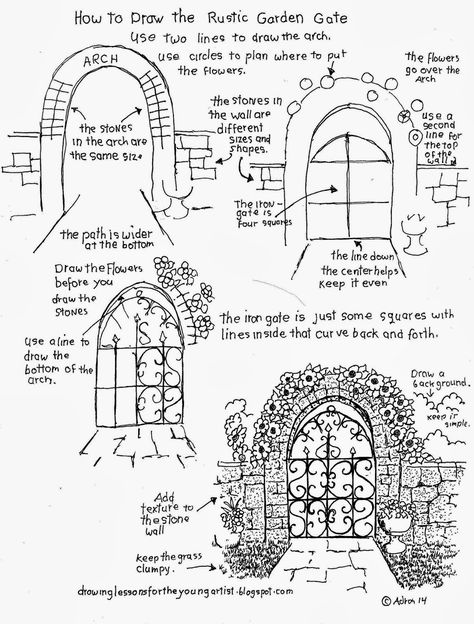 How to Draw the Rustic Garden Gate
Use two lines to draw the arch.
ARCH
use circles to plan where to put
the flowers.
The flowers
go over the
Arch
the stones
in the arch are
the same size
the stones in
the wall are
different
sizes and
shapes.
use a
second
line for
the top
of the
wall
The iron
gate is
four squares
the path is wider
at the bottom
the line down
the center helps
keep it even
Draw the Flowers
before you
draw the
stones
use a line to
draw the
bottom of the
arch.
The iron gate is just some squares with
lines inside that curve back and forth.
Draw a
background.
keep it
simple.
Add
texture to
the stone
wall
keep the grass
clumpy.
drawinglessonsfortheyoungartist.blogspot.com
© Adron 14